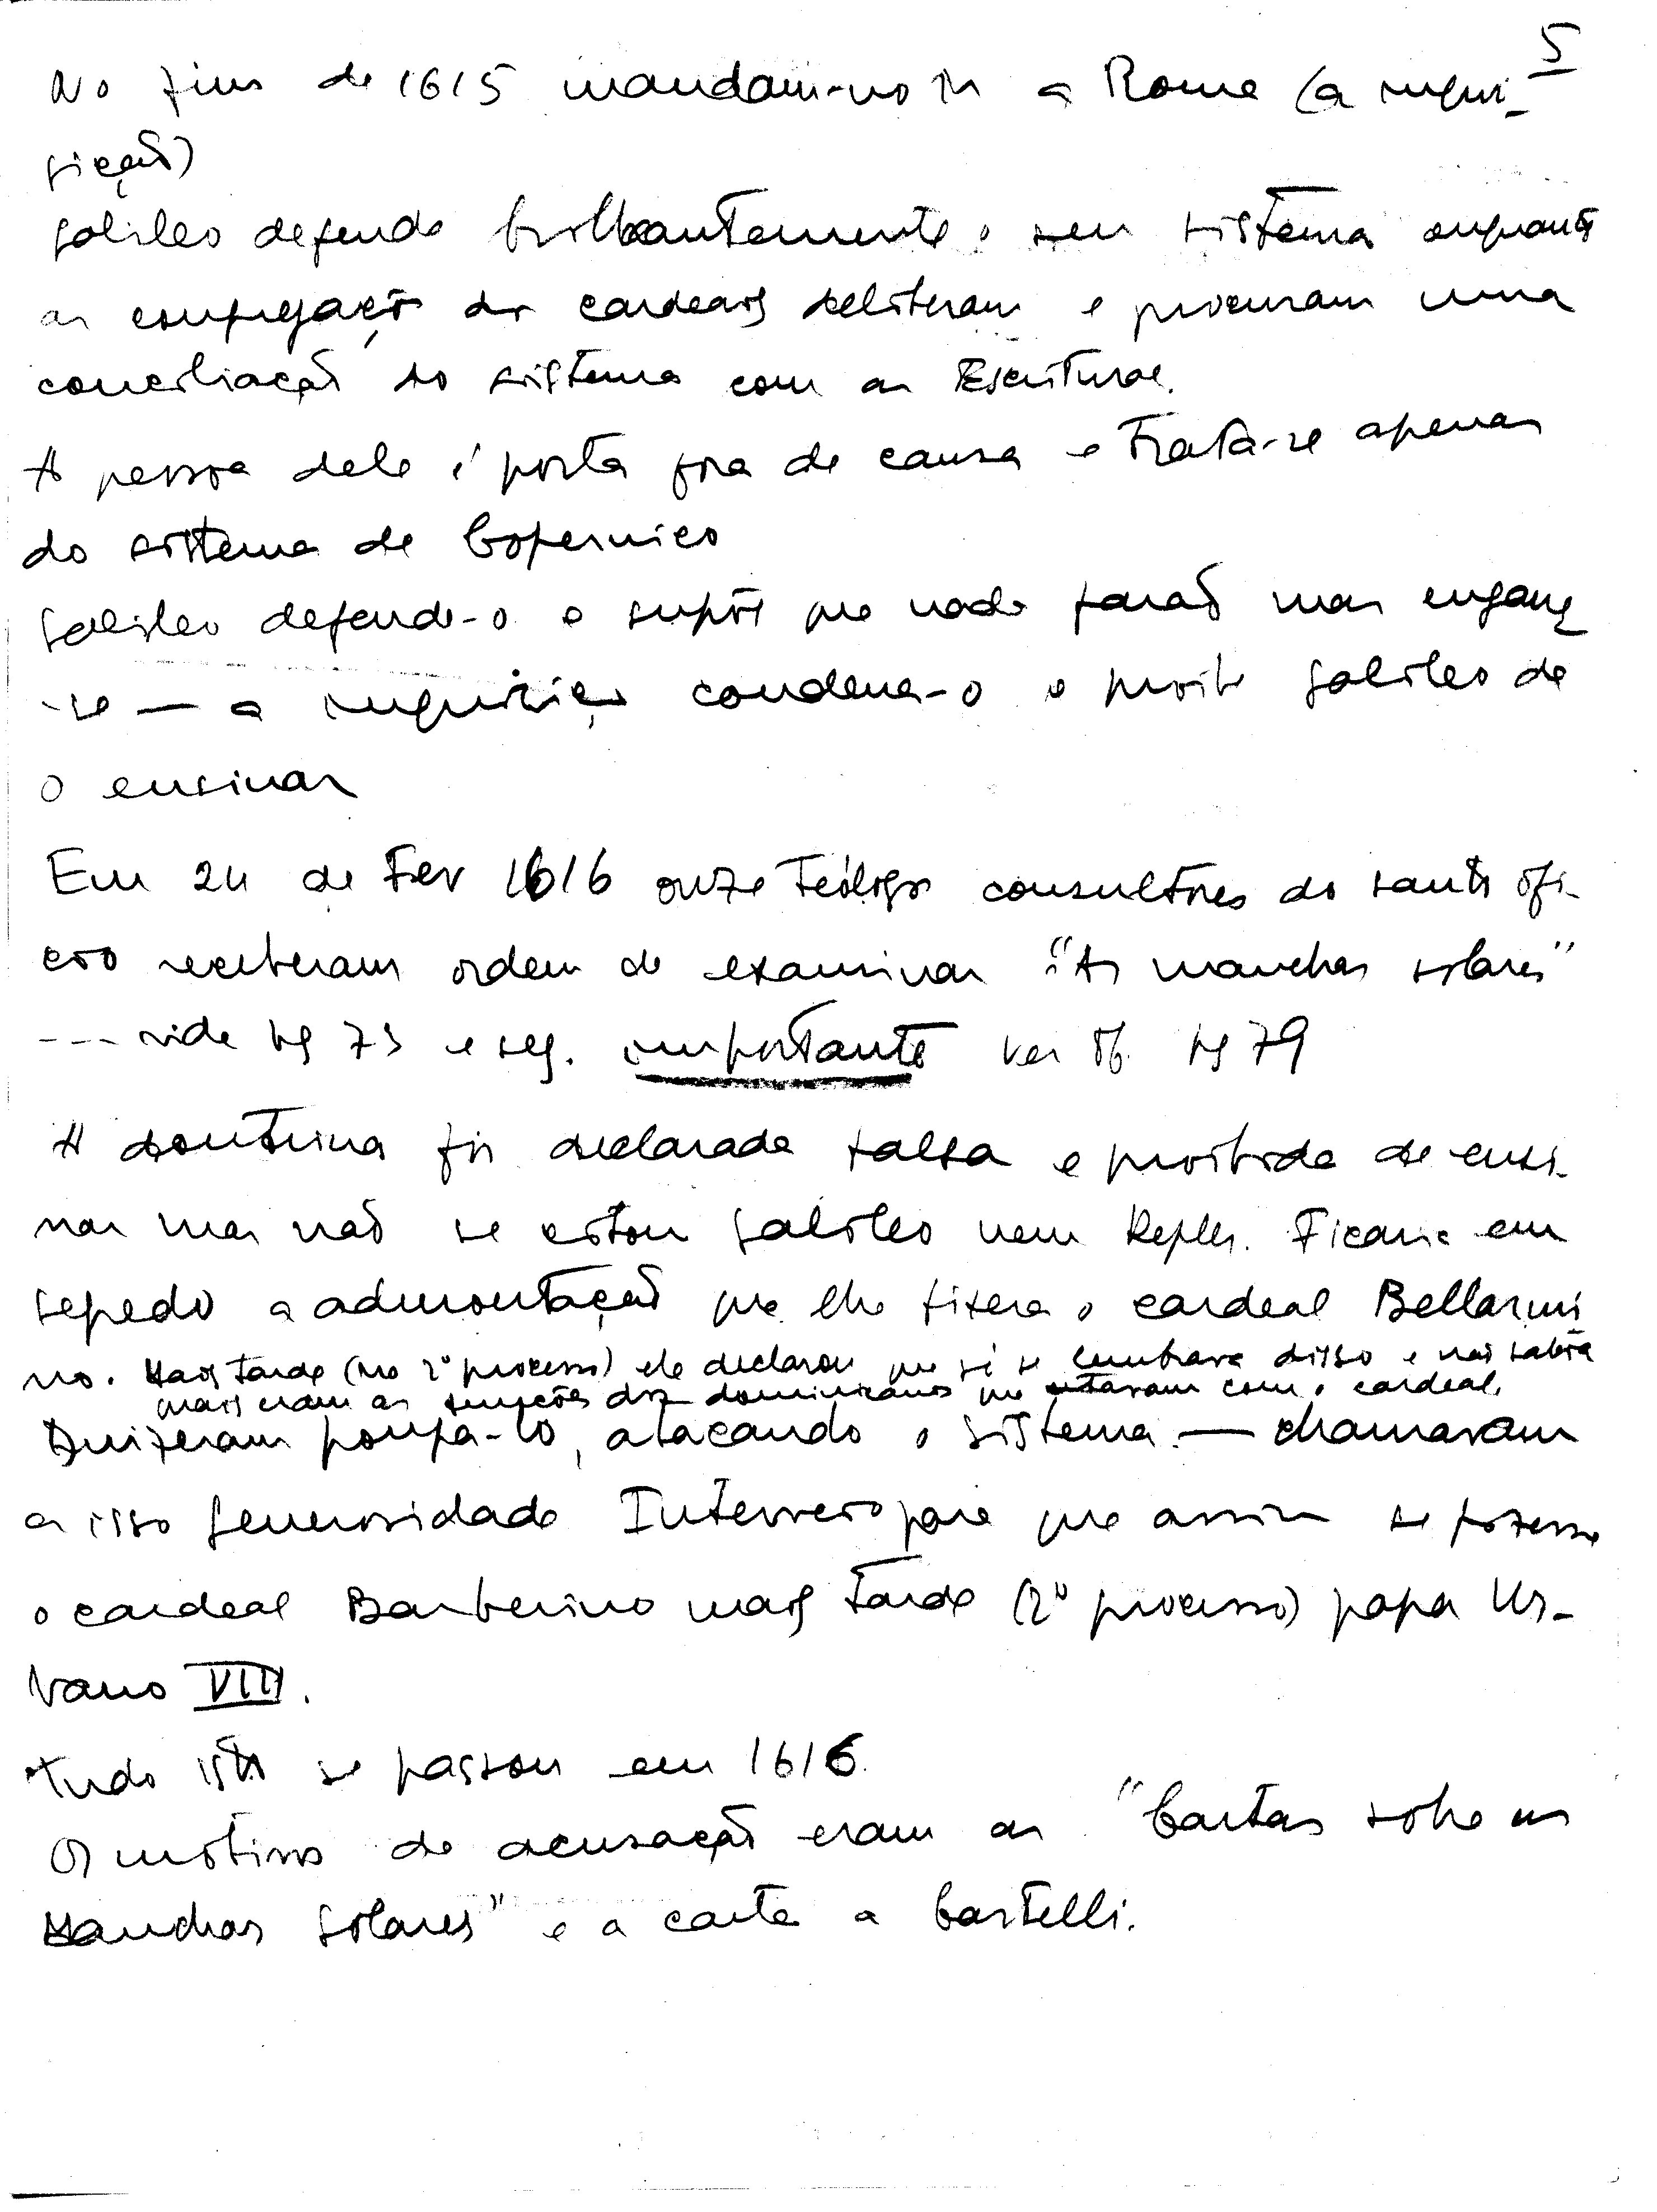 5
No fim de 1615 mandam-no ir a Roma (a inqui-
sição)
Galileo defende brilhantemente o seu sistema enquanto
as congregações dos cardeais deliberam e procuram uma
conciliação do sistema com as Escrituras.
A pessoa dele é posta fora de causa e trata-se apenas
do sistema de Copernico
Galileo defende-o e supõe que nada farão mas engana
-se — a inquisição condena-o e proibe Galileo de
o ensinar
Em 24 de Fev 1616 onze teólogos consultores do santo ofi-
cio receberam ordem de examinar "As manchas solares"
--- vide pg 73 e seg. importante ver pg 79
A doutrina foi declarada falsa e proibida de ensi-
nar mas não se citou Galileo nem Kepler. Ficaria em
segredo a admoestação que lhe fizera o cardeal Bellarmi
no. Mais tarde (no 2º processo) ele declarou que só se lembrava disso e não sabia
quais eram as funções dos dominicanos que estavam com o cardeal.
Quizeram poupa-lo, atacando o sistema — chamavam
a isso generosidade Interveio para que assim se fizesse
o cardeal Barberino mais tarde (2º processo) papa Ur-
bano VIII.
Tudo isto se passou em 1616.
Os motivos de acusação eram as "Cartas sobre as
Manchas Solares" e a carta a Castelli.